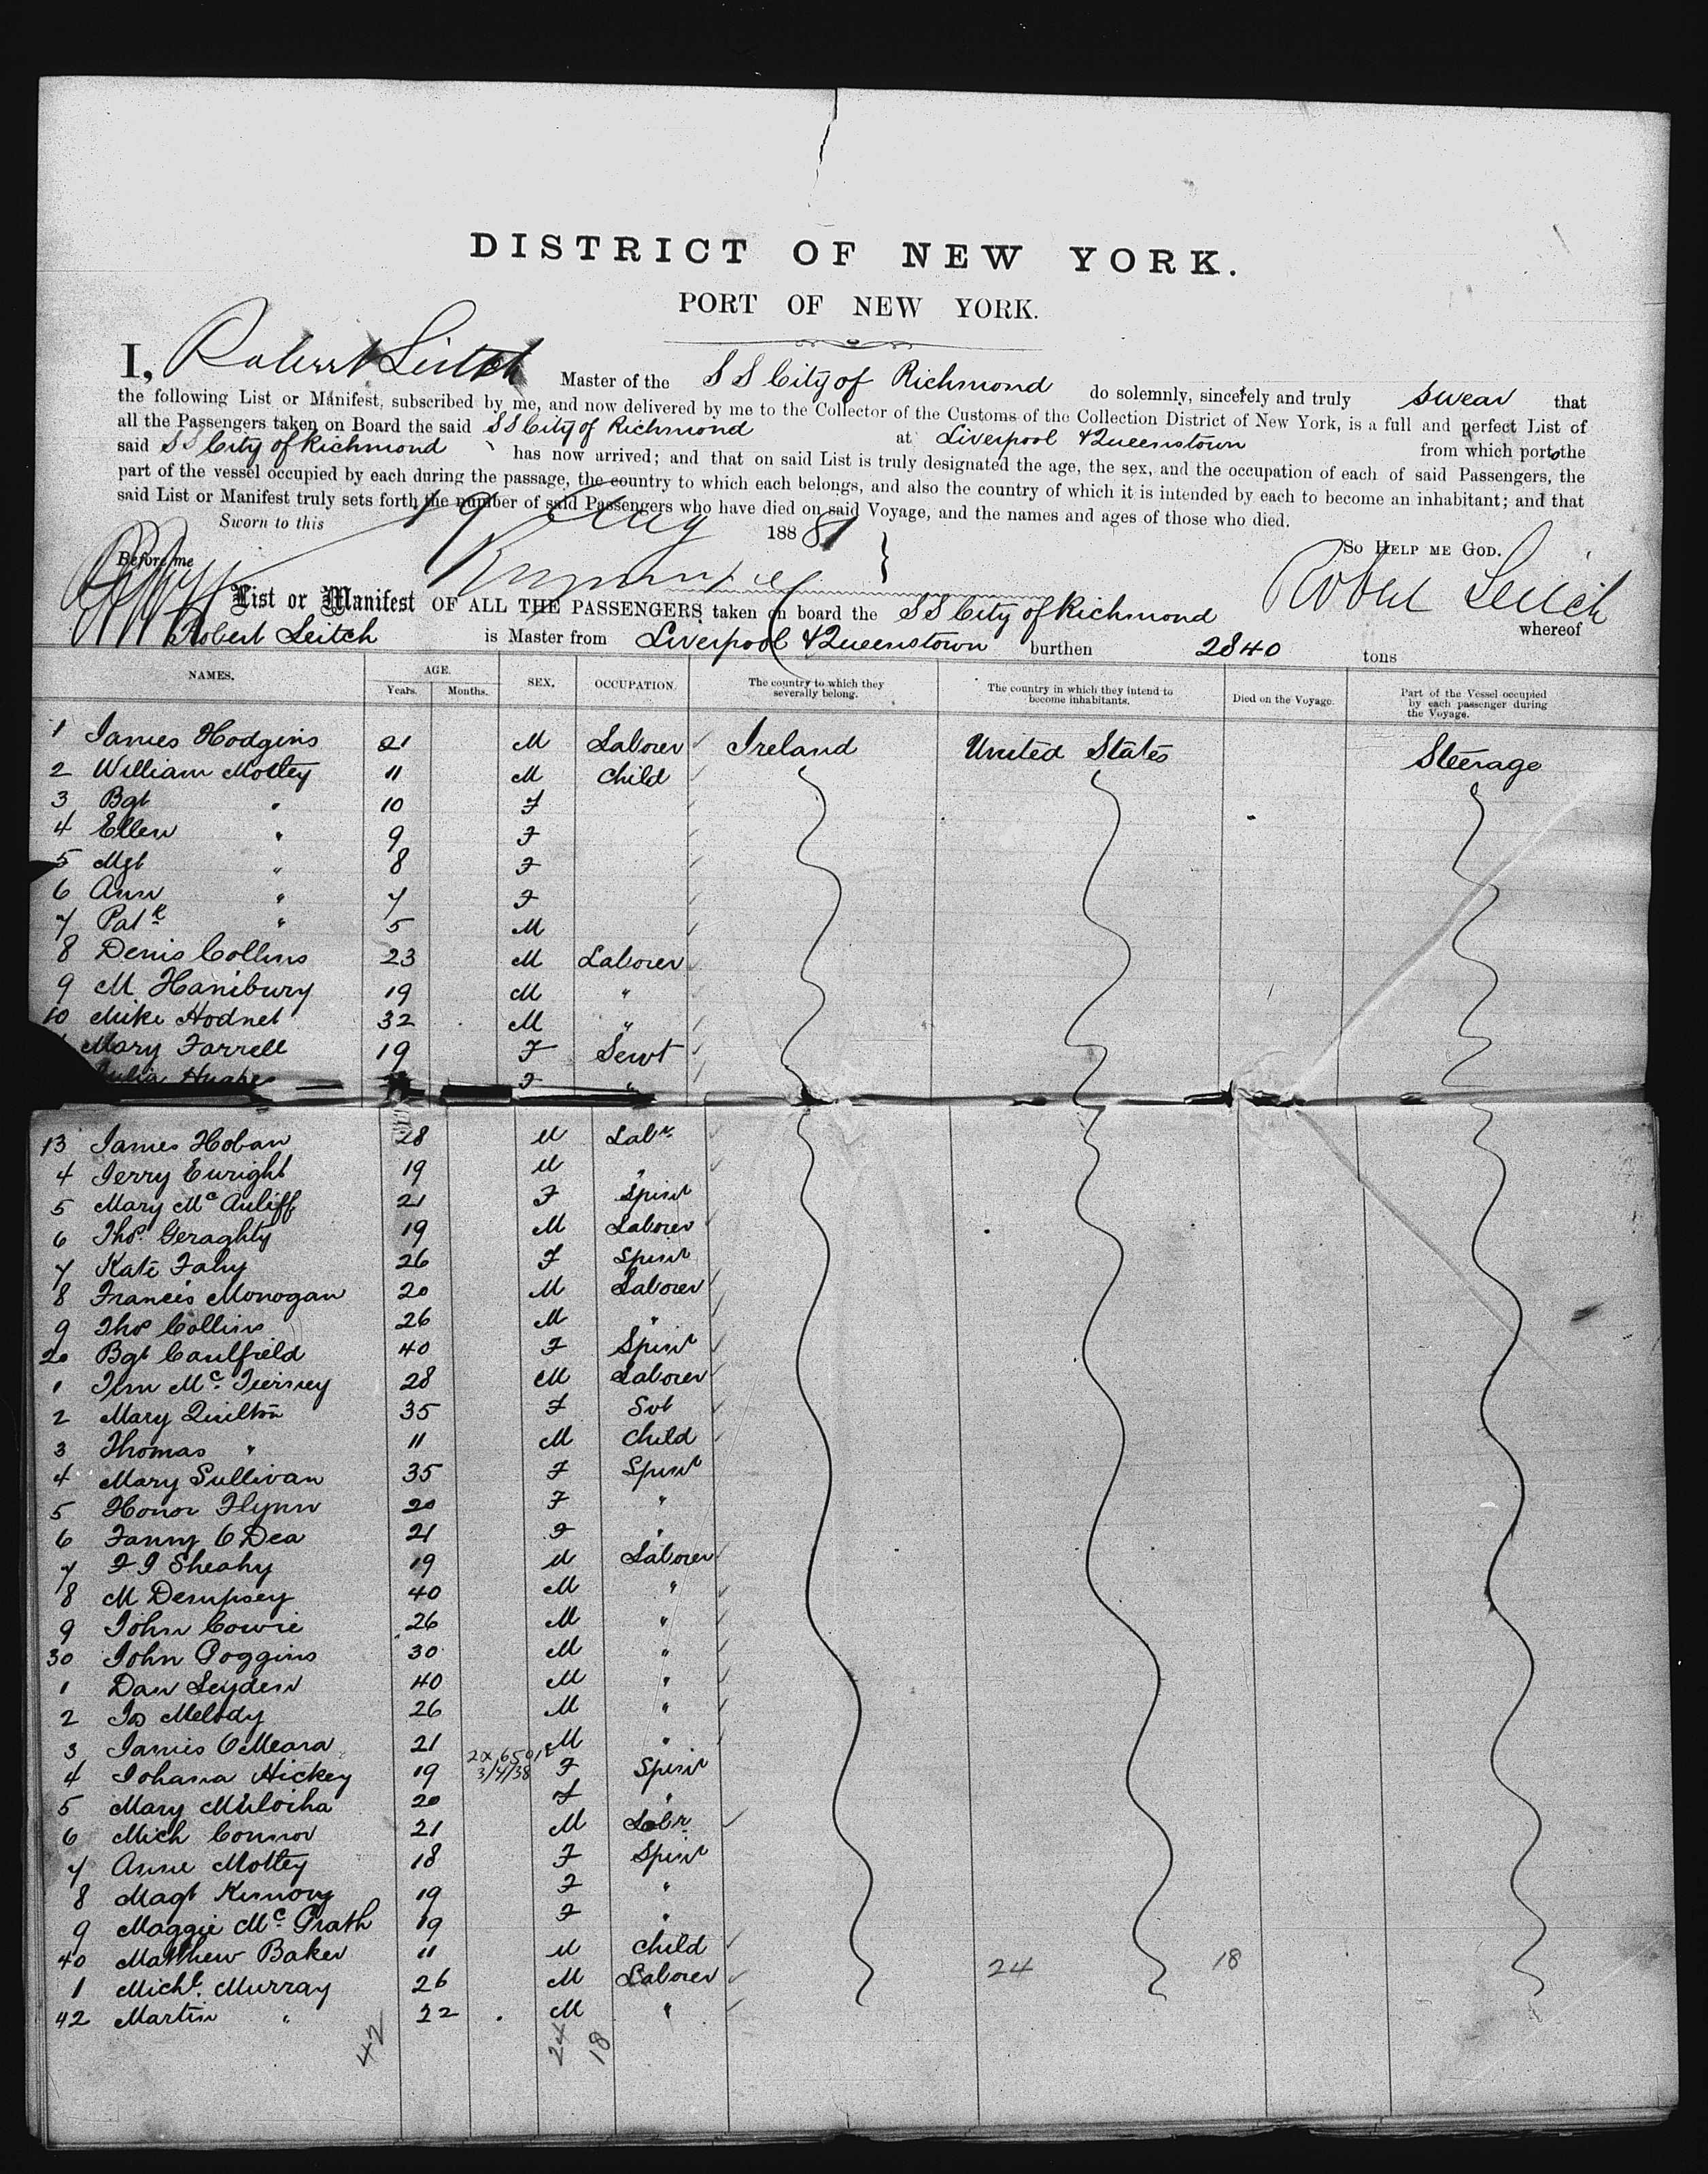 DISTRICT OF NEW YORK.
PORT OF NEW YORK.
I, Robert Leitch Master of the S S City of Richmond do solemnly, sincerely and truly swear that
the following List or Manifest, subscribed by me, and now delivered by me to the Collector of the Customs of the Collection District of New York, is a full and perfect List of
all the Passengers taken on Board the said S S City of Richmond at Liverpool & Queenstown from which ports the
said S S City of Richmond has now arrived; and that on said List is truly designated the age, the sex, and the occupation of each of said Passengers, the
part of the vessel occupied by each during the passage, the country to which each belongs, and also the country of which it is intended by each to become an inhabitant; and that
said List or Manifest truly sets forth the number of said Passengers who have died on said Voyage, and the names and ages of those who died.
Sworn to this 19 Aug 188
So Help me God.
Before me
Robert Leitch
List or Manifest OF ALL THE PASSENGERS taken on board the S S City of Richmond whereof
Robert Leitch is Master from Liverpool & Queenstown burthen 2840 tons
NAMES. AGE. SEX. OCCUPATION. The country to which they severally belong. The country in which they intend to become inhabitants. Died on the Voyage. Part of the Vessel occupied by each passenger during the Voyage.
Years. Months.
1 James Hodgins 21 M Laborer Ireland United States Steerage
2 William Mottey 11 M Child
3 Bgt " 10 F
4 Ellen " 9 F
5 Mgt " 8 F
6 Ann " 7 F
7 Patk " 5 M
8 Denis Collins 23 M Laborer
9 M Hanibury 19 M "
10 Mike Hodnet 32 M "
Mary Farrell 19 F Servt
Julia Hughes F "
13 James Hoban 28 M Labr
4 Jerry Enright 19 M "
5 Mary Mc Auliff 21 F Spinr
6 Thos Geraghty 19 M Laborer
7 Kate Fahy 26 F Spinr
8 Francis Monogan 20 M Laborer
9 Thos Collins 26 M "
20 Bgt Caulfield 40 F Spinr
1 Mc Tierney 28 M Laborer
2 Mary Quilton 35 F Svt
3 Thomas " 11 M Child
4 Mary Sullivan 35 F Spinr
5 Honor Flynn 20 F "
6 Fanny O Dea 21 F "
7 F J Sheahy 19 M Laborer
8 M Dempsey 40 M "
9 John Cowie 26 M "
30 John Goggins 30 M "
1 Dan Leyden 40 M "
2 Jas Melody 26 M "
3 James O Meara 21 M "
4 Johana Hickey 19 3/4/38 F Spinr
5 Mary 20 F "
6 Mich Connor 21 M Labr
7 Anne Mottey 18 F Spinr
8 Magt 19 F "
9 Maggie Mc Grath 19 F "
40 Matthew Baker 11 M Child
1 Michl. Murray 26 M Laborer 24 18
42 Martin " 22 M "
42 24 18